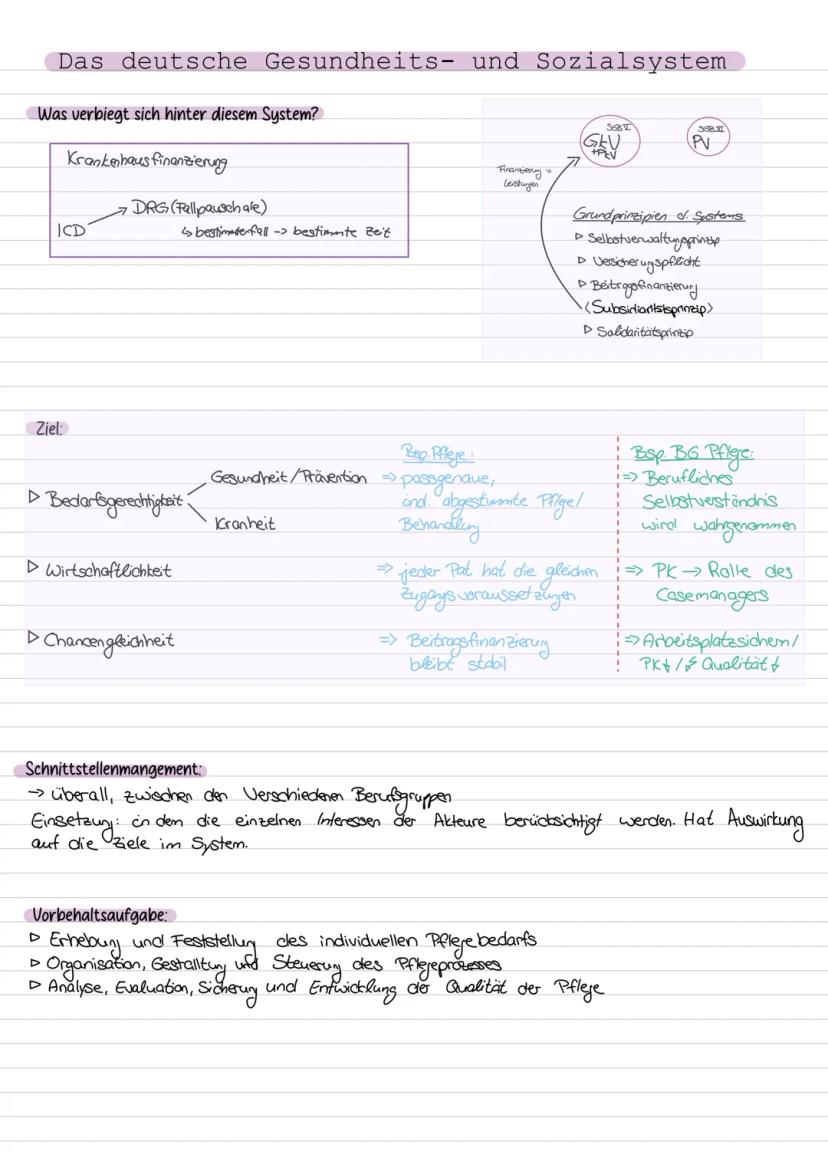 Das deutsche Gesundheits- und Sozialsystem
Was verbiegt sich hinter diesem System?
Krankenhausfinanzierung
ICD → DRG (Fallpauschale)
↳ bestimmter fall -> bestimmte Zeit
SGB V
GKV
+PKV
SGB XI
PV
Finanzierung v.
Leistungen
Grundprinzipien d. Systems
▷ Selbstverwaltungsprinzip
▷ Versicherungspflicht
▷ Beitragsfinanzierung
<Subsidiaritätsprinzip>
▷ Solidaritätsprinzip
Ziel:
Bsp. Pflege:
Bsp. BG Pflege:
▷ Bedarfsgerechtigkeit
Gesundheit/Prävention
Kranheit
=> passgenaue,
ind. abgestimmte Pflge/
Behandlung
=> Berufliches
Selbstverständnis
wird wahrgenommen
▷ Wirtschaftlichkeit
=> jeder Pat hat die gleichen
Zugangsvoraussetzungen
=> PK → Rolle des
Casemanagers
▷ Chancengleichheit
=> Beitragsfinanzierung
bleibt stabil
=> Arbeitsplatzsichern/
PK↓/⚡ Qualität↓
Schnittstellenmangement:
→ überall, zwischen den Verschiedenen Berufsgruppen
Einsetzung: in dem die einzelnen Interessen der Akteure berücksichtigt werden. Hat Auswirkung
auf die Ziele im System.
Vorbehaltsaufgabe:
▷ Erhebung und Feststellung des individuellen Pflegebedarfs
▷ Organisation, Gestalltung und Steuerung des Pflegeprozesses
▷ Analyse, Evaluation, Sicherung und Entwicklung der Qualität der Pflege